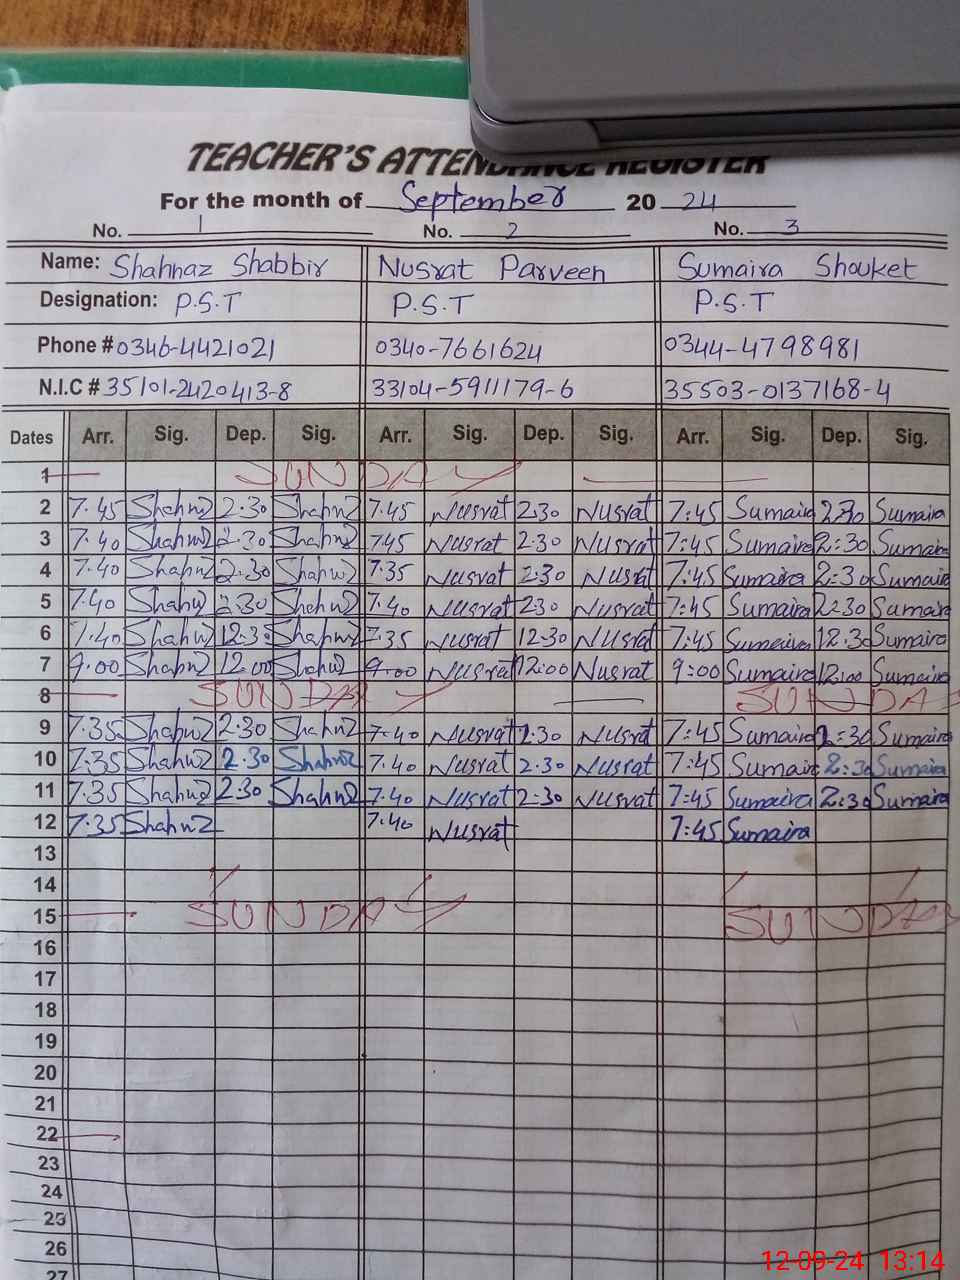 TEACHER'S ATTENDANCE REGISTER
For the month of September 20 24
No. 1 No. 2 No. 3
Name: Shahnaz Shabbir Nusrat Parveen Sumaira Shouket
Designation: P.S.T P.S.T P.S.T
Phone # 0346-4421021 0340-7661624 0344-4798981
N.I.C # 35101-2420413-8 33104-5911179-6 35503-0137168-4
Dates Arr. Sig. Dep. Sig. Arr. Sig. Dep. Sig. Arr. Sig. Dep. Sig.
1 SUNDAY
2 7.45 2.30 7.45 Nusrat 2:30 Nusrat 7:45 Sumaira 2:30 Sumaira
3 7.40 2.30 7.45 Nusrat 2.30 Nusrat 7:45 Sumaira 2:30 Sumaira
4 7.40 2.30 7.35 Nusrat 2.30 Nusrat 7:45 Sumaira 2:30 Sumaira
5 7.40 2.30 7.40 Nusrat 2.30 Nusrat 7:45 Sumaira 2:30 Sumaira
6 7.40 12.30 7.35 Nusrat 12.30 Nusrat 7:45 Sumaira 12.30 Sumaira
7 9.00 12.00 9.00 Nusrat 12:00 Nusrat 9:00 Sumaira 12:00 Sumaira
8 SUNDAY SUNDAY
9 7.35 2.30 7.40 Nusrat 2.30 Nusrat 7:45 Sumaira 2:30 Sumaira
10 7.35 2.30 7.40 Nusrat 2.30 Nusrat 7:45 Sumaira 2:30 Sumaira
11 7.35 2.30 7.40 Nusrat 2.30 Nusrat 7:45 Sumaira 2:30 Sumaira
12 7.35 7.40 Nusrat 7:45 Sumaira
13
14
15 SUNDAY SUNDAY
16
17
18
19
20
21
22
23
24
25
26
27
12-09-24 13:14